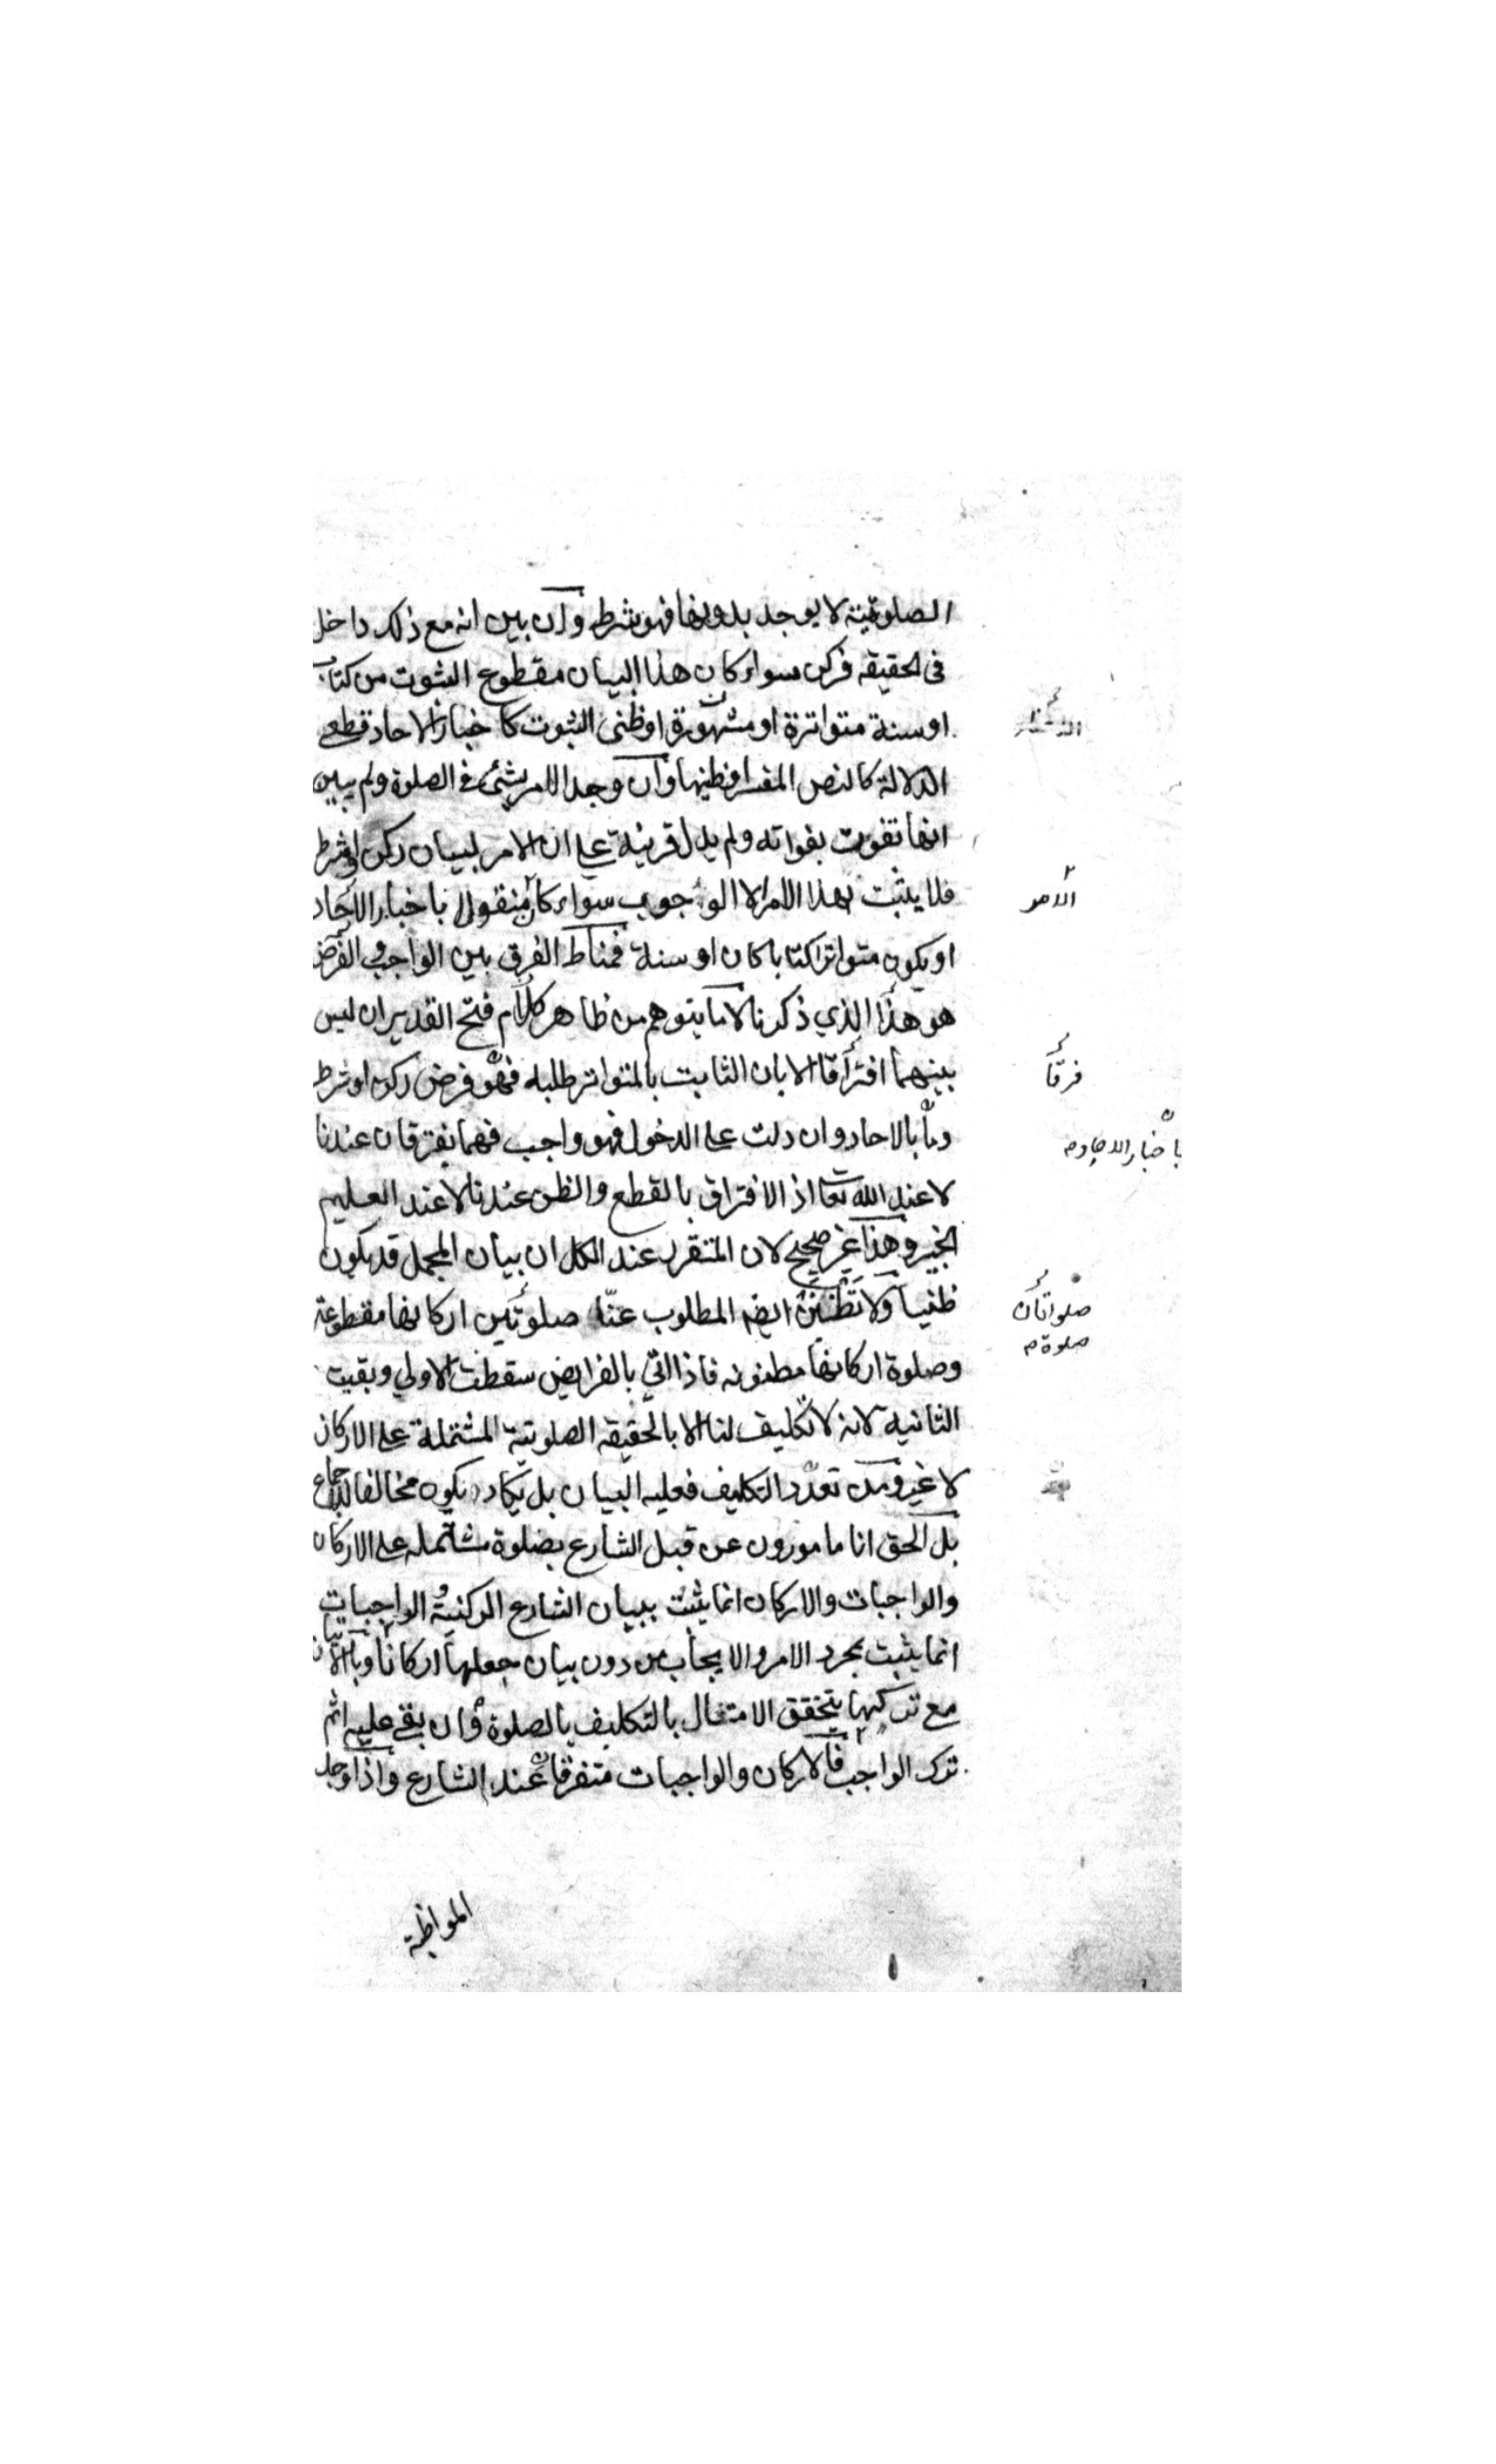 الصلوتية لا يوجد بدونها فهو شرط وان بين انه مع ذلك داخل
فى الحقيقه فركن سواء كان هذا البيان مقطوع الثبوت من كتاب
او سنة متواترة او مشهورة او ظنى الثبوت كاخبار الاحاد قطعى
الدلالة كالنص المفسر او ظنيها وان وجد الامر بشئ فى الصلوة ولم يبين
انها تفوت بفواته ولم يدل قرينة على ان الامر لبيان ركن او شرط
فلا يثبت بهذا الامر الا الوجوب سواء كان منقولا باخبار الآحاد
او يكون متواترا كتابا كان او سنة فمناط الفرق بين الواجب والفرض
هو هذا الذي ذكرنا لا ما يتوهم من ظاهر كلام فتح القدير ان ليس
بينهما افتراقا الا بان الثابت بالمتواتر طلبه فهو فرض ركن او شرط
وما بالاحاد وان دلت على الدخول فهو واجب فهما يفترقان عندنا
لا عند الله تعا اذ الافتراق بالقطع والظن عندنا لا عند العليم
الخبير وهذا غير صحيح لان المتقرر عند الكل ان بيان المجمل قد يكون
ظنيا ولا تظنن ايضه المطلوب عنا صلوتين اركانها مقطوعة
وصلوة اركانها مظنونه فاذا اتى بالفرايض سقطت الاولي وبقيت
الثانيه لانه لا تكليف لنا الا بالحقيقه الصلوتية المشتملة على الاركان
لا غير ومن تعدد التكليف فعليه البيان بل يكاد يكون مخالفا للاجماع
بل الحق انا مامورون عن قبل الشارع بصلوة مشتمله على الاركان
والواجبات والاركان انما يثبت ببيان الشارع الركنية الواجبات
انما يثبت بمجرد الامر والايجاب من دون بيان جعلها اركانا وبالاتيان
مع تركها يتحقق الامتثال بالتكليف بالصلوة وان بقى عليه اثم
ترك الواجب فالاركان والواجبات متفرقان عند الشارع واذا وجد
المواظبة
الامر
فرقا
باخبار الاحاد م
صلواتان
صلوة م